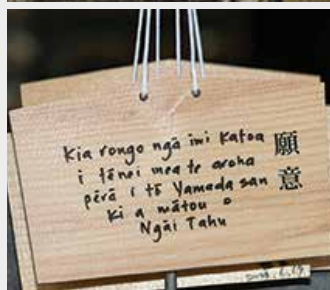 Kia rongo ngā iwi katoa
i tēnei mea te aroha
pērā i tō Yamada san
ki a mātou
Ngāi Tahu
願意